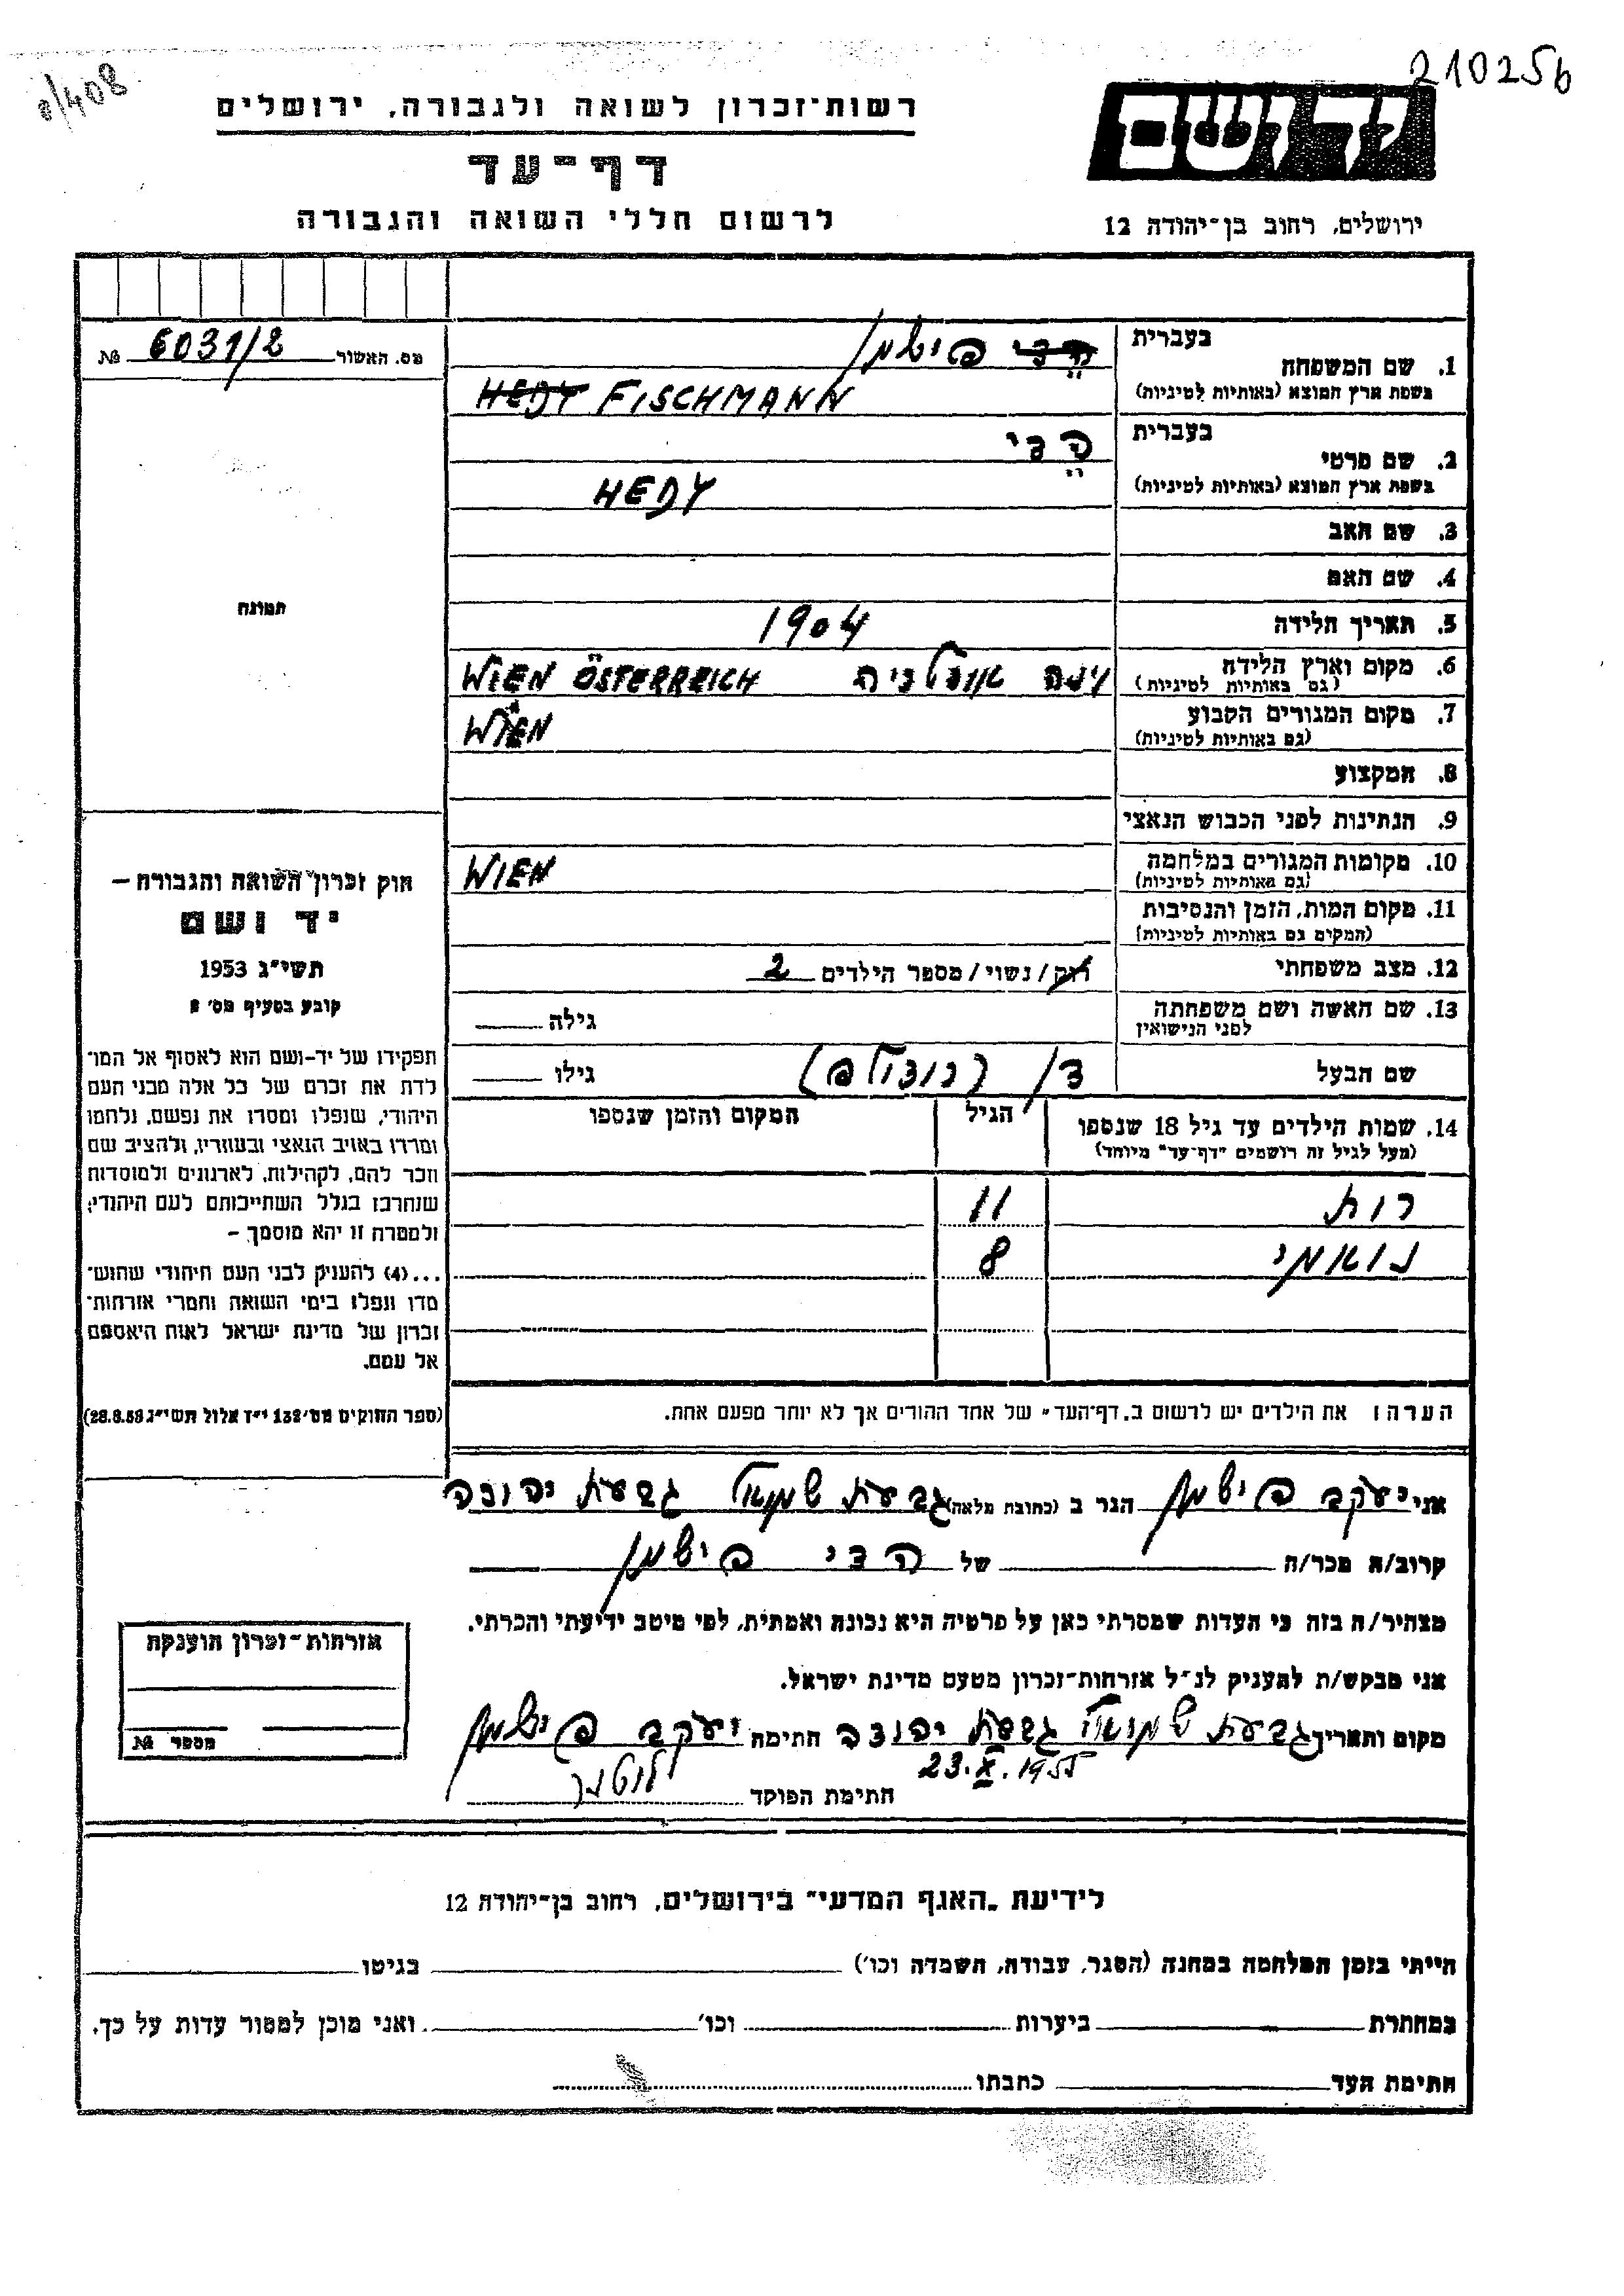 210256
8/408
יד ושם
ירושלים, רחוב בן־יהודה 12
רשות־זכרון לשואה ולגבורה, ירושלים
דף־עד
לרשום חללי השואה והגבורה
מס. האשור 6031/2 №
תמונה
חוק זכרון השואה והגבורה –
יד ושם
תשי״ג 1953
קובע בסעיף מס׳ 2
תפקידו של יד-ושם הוא לאסוף אל המו־
לדת את זכרם של כל אלה מבני העם
היהודי, שנפלו ומסרו את נפשם, נלחמו
ומרדו באויב הנאצי ובעוזריו, ולהציב שם
וזכר להם, לקהילות, לארגונים ולמוסדות
שנחרבו בגלל השתייכותם לעם היהודי;
ולמטרה זו יהא מוסמך –
...(4) להעניק לבני העם היהודי שהוש־
מדו ונפלו בימי השואה והמרי אזרחות־
זכרון של מדינת ישראל לאות היאספם
אל עמם.
(ספר החוקים מס׳ 132 י״ז אלול תשי״ג 28.8.53)
בעברית הדי פישמן
1. שם המשפחה
בשפת ארץ המוצא (באותיות לטיניות) HEDY FISCHMANN
בעברית הדי
2. שם פרטי
בשפת ארץ המוצא (באותיות לטיניות) HEDY
3. שם האב
4. שם האם
5. תאריך הלידה 1904
6. מקום וארץ הלידה וינה אוסטריה WIEN ÖSTERREICH
(גם באותיות לטיניות)
7. מקום המגורים הקבוע WIEN
(גם באותיות לטיניות)
8. המקצוע
9. הנתינות לפני הכבוש הנאצי
10. מקומות המגורים במלחמה WIEN
(גם באותיות לטיניות)
11. מקום המות, הזמן והנסיבות
(המקום גם באותיות לטיניות)
12. מצב משפחתי רוק/נשוי/מספר הילדים 2
13. שם האשה ושם משפחתה גילה
לפני הנישואין
שם הבעל ד/ (רודולף) גילו
14. שמות הילדים עד גיל 18 שנספו הגיל המקום והזמן שנספו
(מעל לגיל זה רושמים "דף־עד" מיוחד)
רות 11
נואמי 8
הערה: את הילדים יש לרשום ב„דף־העד״ של אחד ההורים אך לא יותר מפעם אחת.
אני יעקב פישמן הגר ב (כתובת מלאה) גבעת שמואל גבעת יהודה
קרוב/ה מכר/ה של הדי פישמן
מצהיר/ה בזה כי העדות שמסרתי כאן על פרטיה היא נכונה ואמתית, לפי מיטב ידיעתי והכרתי.
אני מבקש/ת להעניק לנ״ל אזרחות־זכרון מטעם מדינת ישראל.
מקום ותאריך גבעת שמואל גבעת יהודה חתימה יעקב פישמן
23.X.1955
חתימת הפוקד
אזרחות־זכרון הוענקה
מספר №
לידיעת „האגף המדעי״ בירושלים, רחוב בן־יהודה 12
הייתי בזמן המלחמה במחנה (הסגר, עבודה, השמדה וכו׳) בגיטו
במחתרת ביערות וכו׳ ואני מוכן למסור עדות על כך.
חתימת העד כתבתו